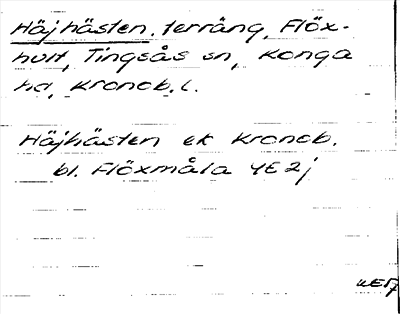 Höjhästen, terräng, Flöx-
hult, Tingsås sn, Konga
hd, Kronob. l.
Höjhästen ek Kronob.
bl. Flöxmåla 4E2j